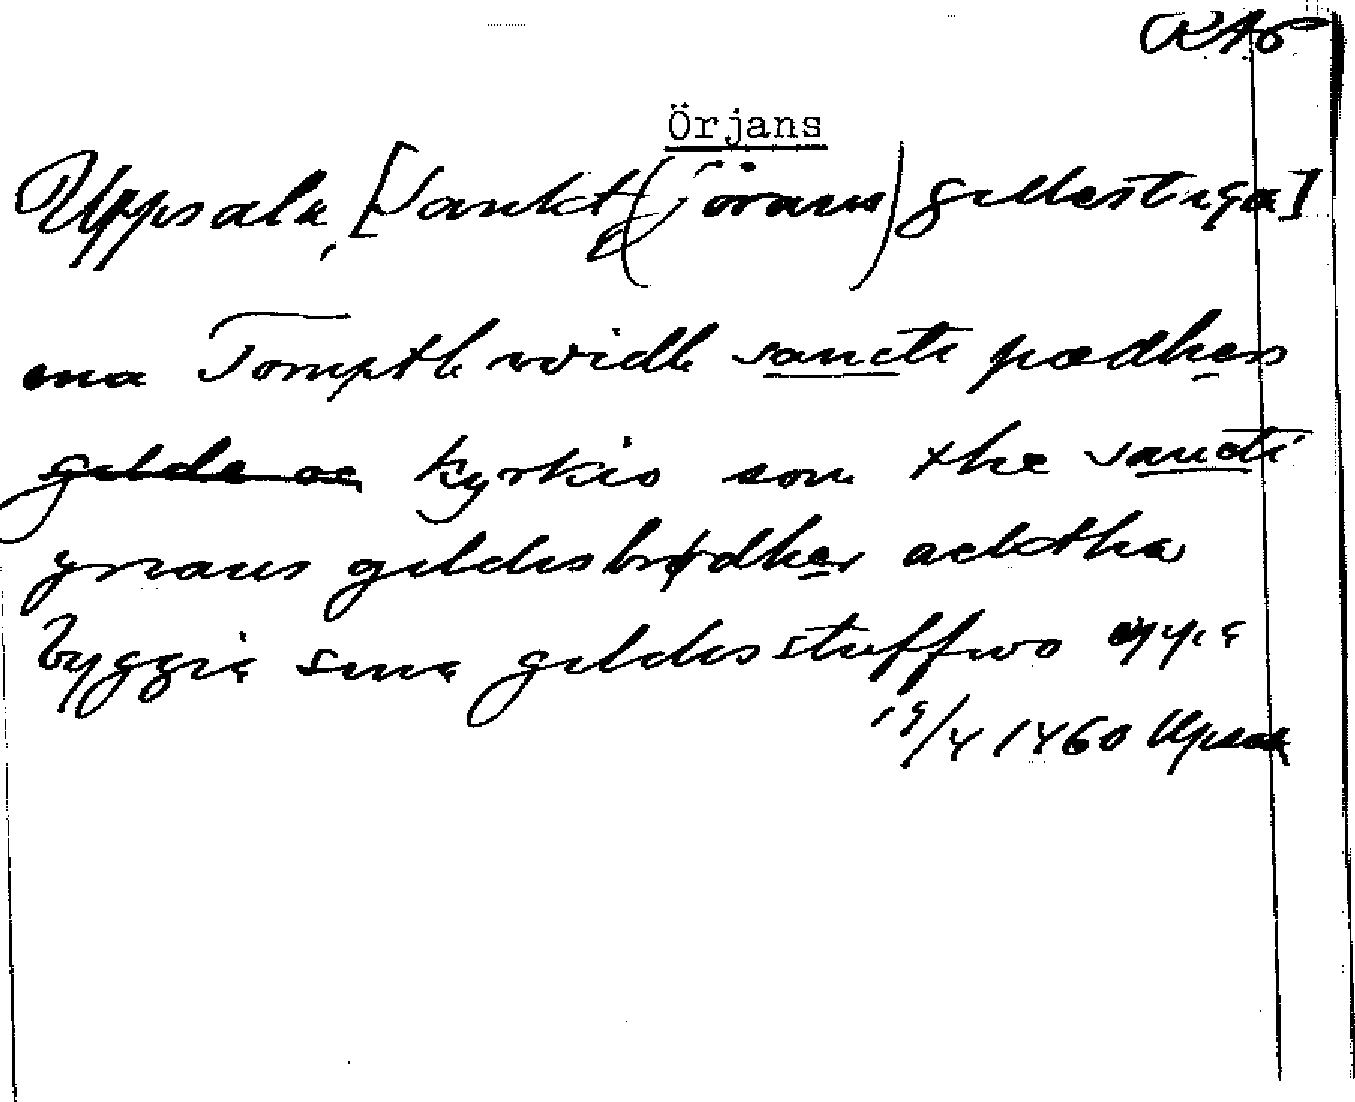 RAp
Örjans
Uppsala, [Sankt (Jörans) gillestuga]
ena Tompth widh sancti pædhers
gilde oc kyrkio som the sancti
yrians gildesbrødher acktha
byggia sina gildesstuffwo oppa
19/4 1460 Upsala